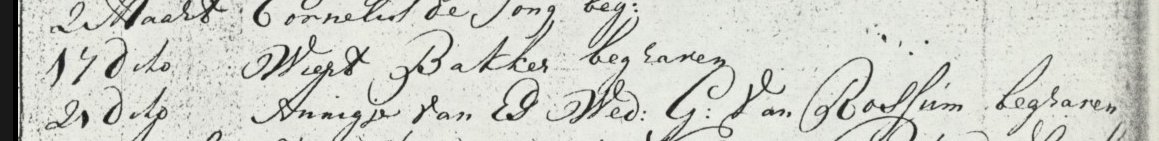 2 Maart Cornelis de Jong beg:
17 Dito Wiept Bakker begraven
21 Dito Annigje van Es Wed: G: van Rossum begraven